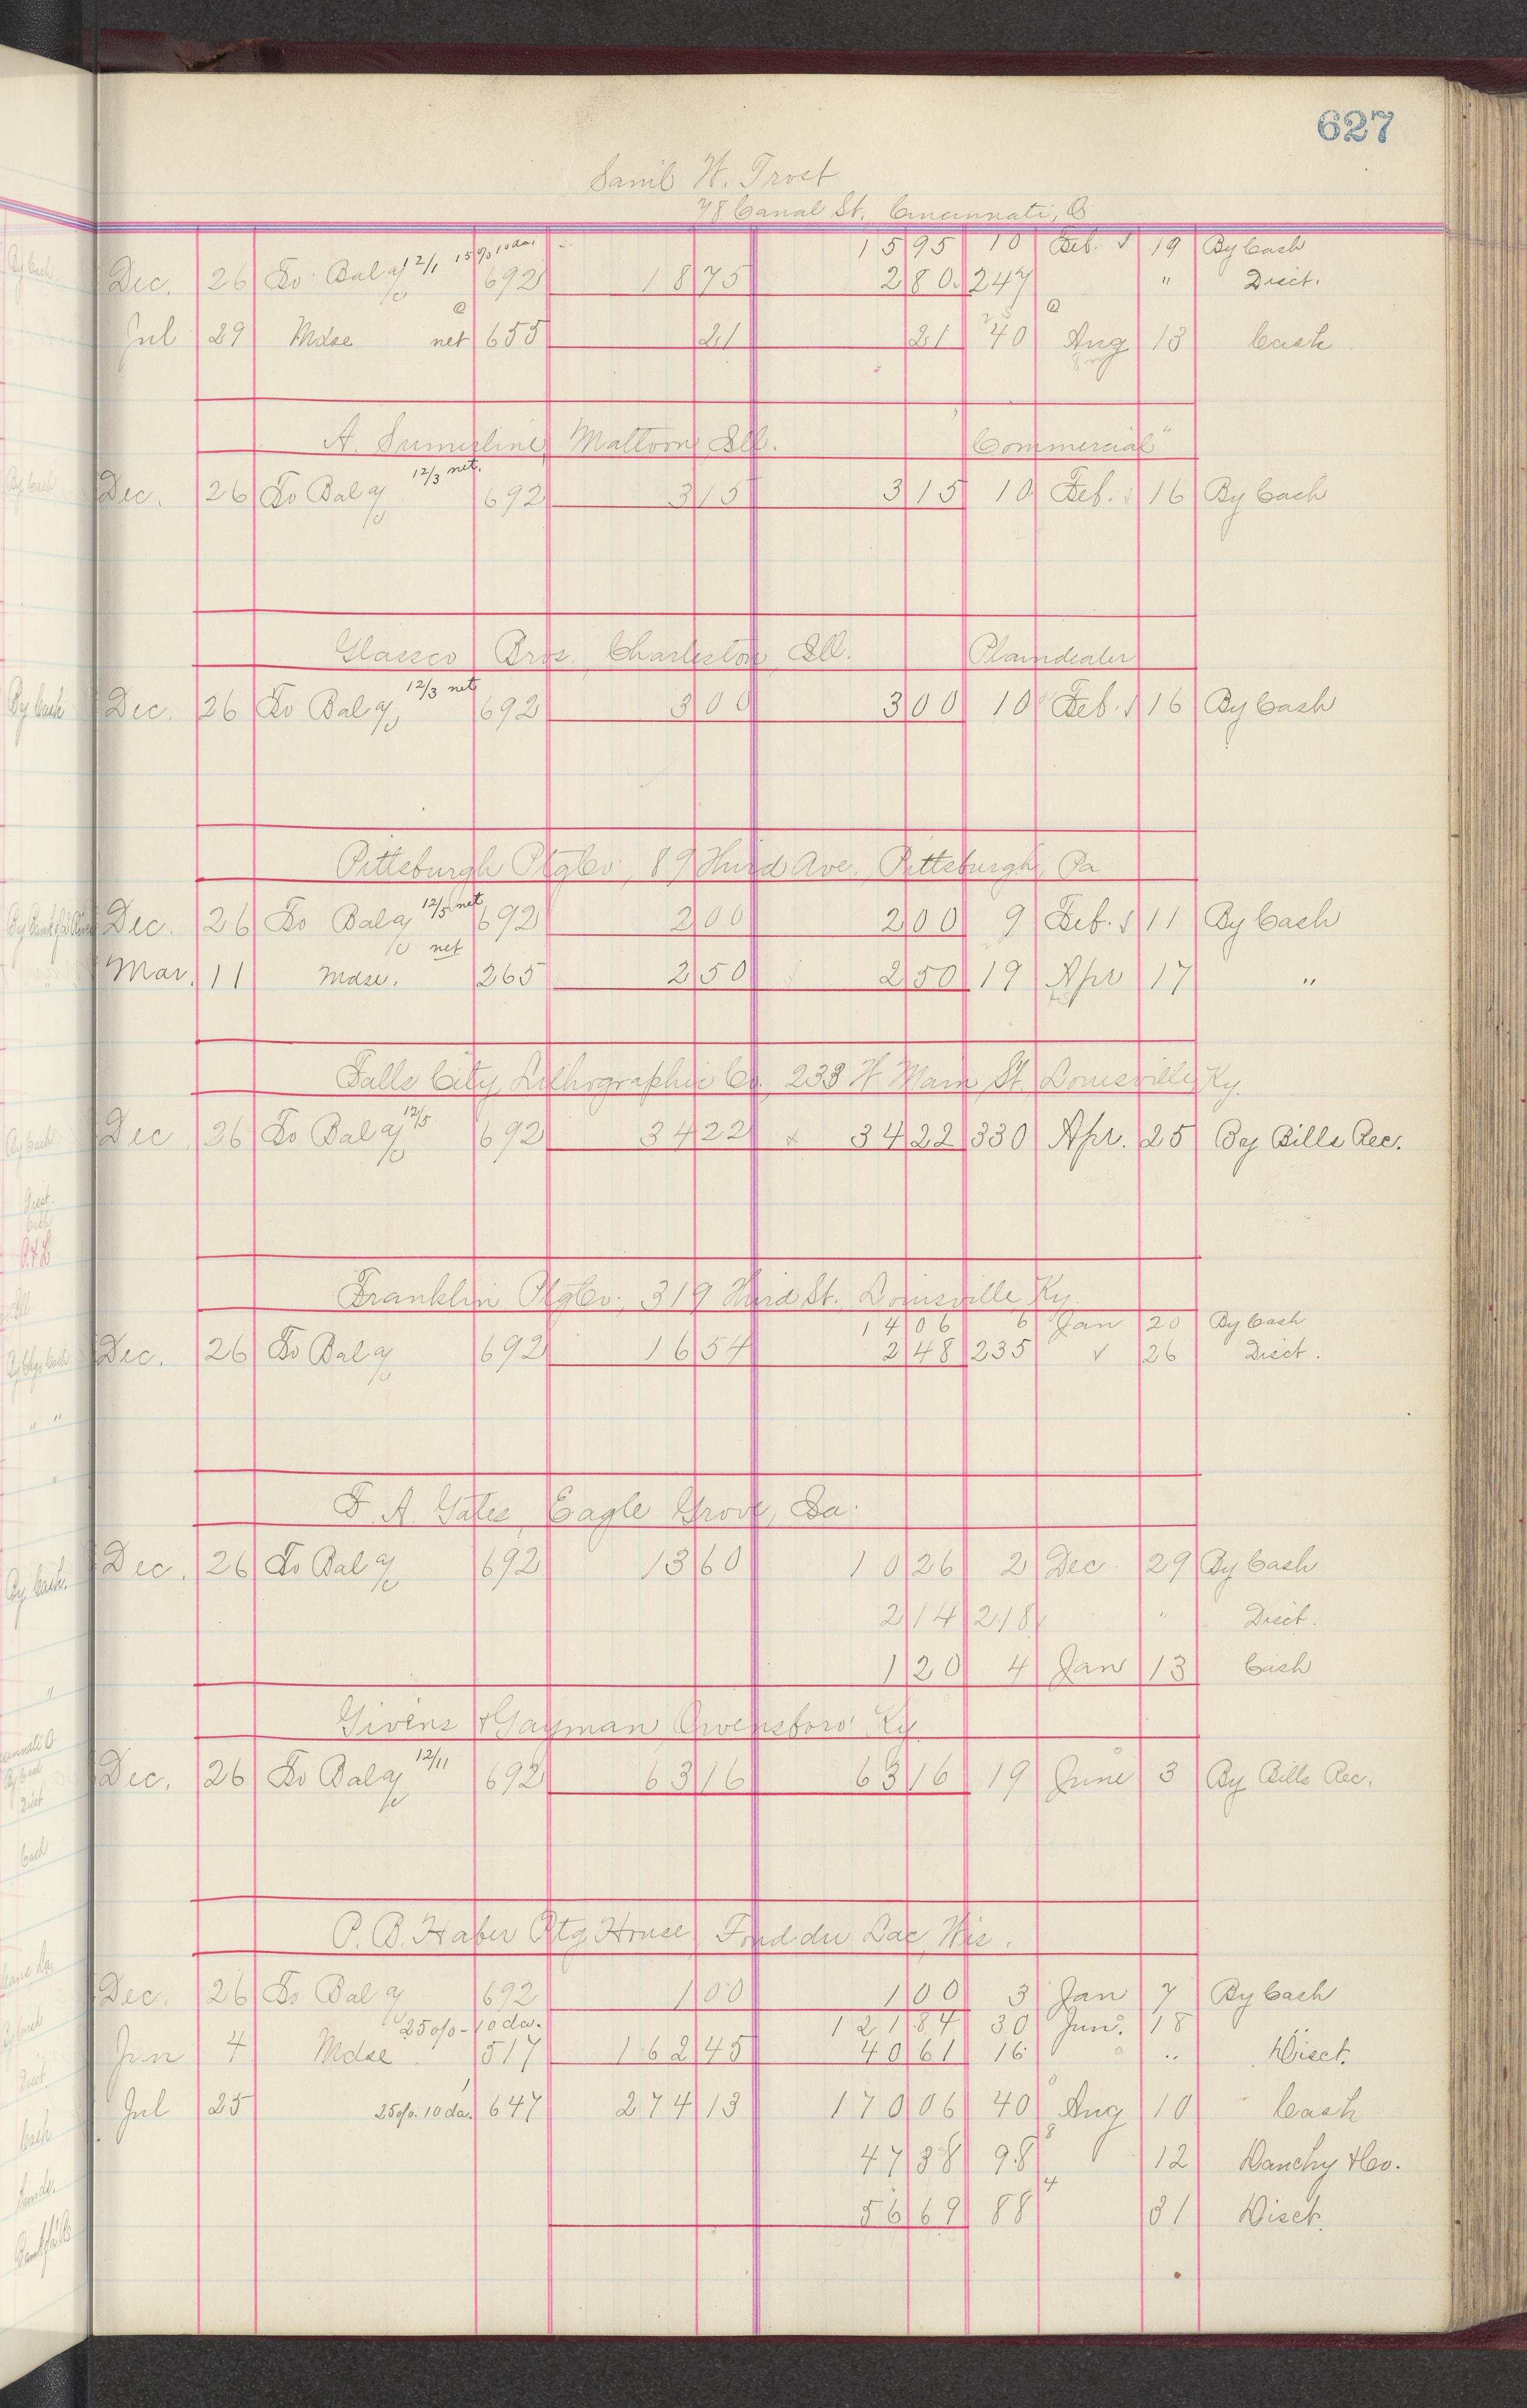 627
Saml W. Trost
78 Canal St., Cincinnati, O
15 95 10 Feb. 19 By Cash
Dec. 26 To Bal a/c 12/1 15% 10 da. 692 18 75 2 80 247 " Disct.
Jul 29 Mdse net 655 21 21 40 Aug 13 Cash
A. Sumerline, Mattoon, Ill. "Commercial"
Dec. 26 To Bal a/c 12/3 net. 692 3 15 3 15 10 Feb. 16 By Cash
Glassco Bros. Charleston, Ill. Plaindealer
Dec. 26 To Bal a/c 12/3 net 692 3 00 3 00 10 Feb. 16 By Cash
Pittsburgh Ptg Co., 89 Third Ave., Pittsburgh, Pa
Dec. 26 To Bal a/c 12/5 net 692 2 00 2 00 9 Feb. 11 By Cash
Mar. 11 Mdse. net 265 2 50 2 50 19 Apr 17 "
Falls City Lithographic Co. 233 W Main St. Louisville Ky.
Dec 26 To Bal a/c 12/5 692 34 22 x 34 22 330 Apr. 25 By Bills Rec.
Franklin Ptg Co., 319 Third St., Louisville, Ky.
14 06 6 Jan 20 By Cash
Dec. 26 To Bal a/c 692 16 54 2 48 235 26 Disct.
F. A. Gates, Eagle Grove, Ia.
Dec. 26 To Bal a/c 692 13 60 10 26 2 Dec. 29 By Cash
2 14 218 " Disct.
1 20 4 Jan 13 Cash
Givens & Gayman Owensboro' Ky
Dec. 26 To Bal a/c 12/11 692 63 16 63 16 19 June 3 By Bills Rec.
P. B. Haber Ptg House, Fond du Lac, Wis.
Dec. 26 To Bal a/c 692 1 00 1 00 3 Jan 7 By Cash
25% - 10 da. 121 84 30 Jun. 18 "
Jun 4 Mdse 517 162 45 40 61 16 " Disct.
Jul 25 25% 10 da. 647 274 13 170 06 40 Aug 10 Cash
47 38 98 12 Danchy & Co.
56 69 88 31 Disct.